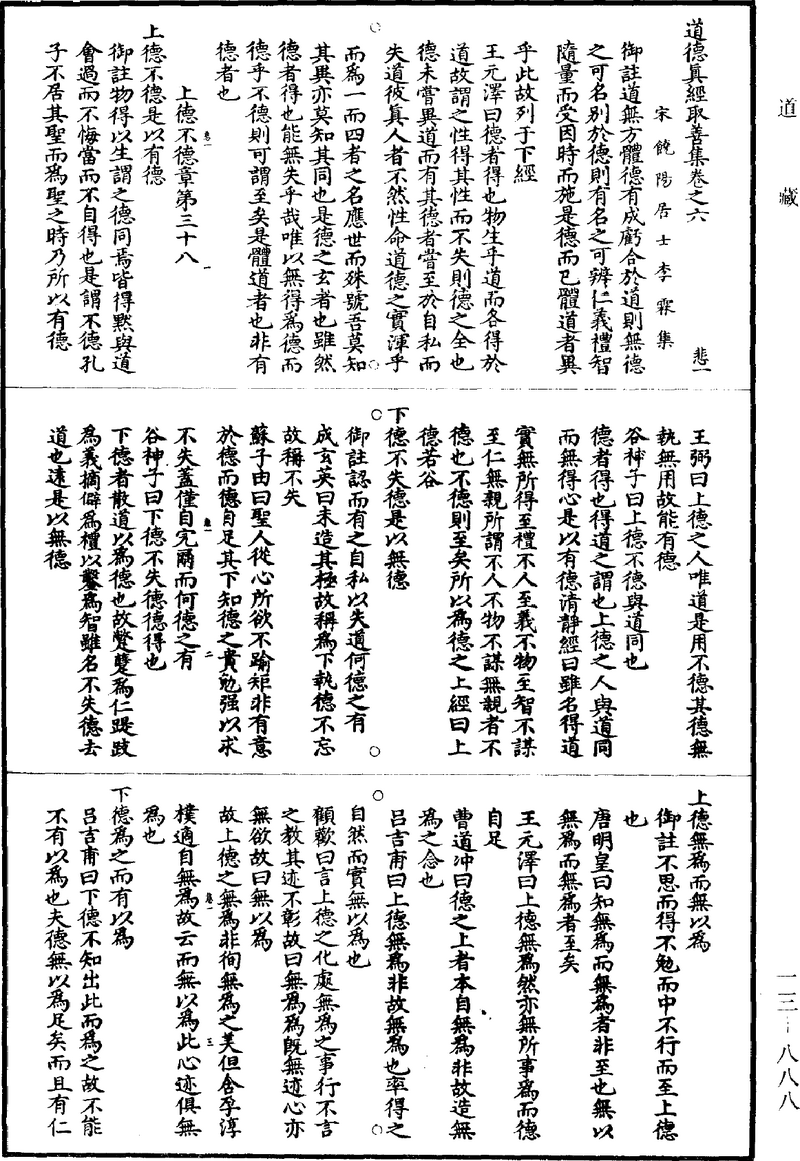 道藏
道德眞經取善集卷之六
悲一
宋饒陽居士李霖集
御註道無方體德有成虧合於道則無德
之可名別於德則有名之可辨仁義禮智
隨量而受因時而施是德而已體道者異
乎此故列于下經
王元澤曰德者得也物生乎道而各得於
道故謂之性得其性而不失則德之全也
德未嘗異道而有其德者嘗至於自私而
失道彼眞人者不然性命道德之實渾乎
而爲一而四者之名應世而殊號吾莫知
其異亦莫知其同也是德之玄者也雖然
德者得也能無失乎哉唯以無得爲德而
德乎不德則可謂至矣是體道者也非有
德者也
上德不德章第三十八
上德不德是以有德
御註物得以生謂之德同焉皆得默與道
會過而不悔當而不自得也是謂不德孔
子不居其聖而爲聖之時乃所以有德
王弼曰上德之人唯道是用不德其德無
執無用故能有德
谷神子曰上德不德與道同也
德者得也得道之謂也上德之人與道同
而無得心是以有德清靜經曰雖名得道
實無所得至禮不人至義不物至智不謀
至仁無親所謂不人不物不謀無親者不
德也不德則至矣所以爲德之上經曰上
德若谷
下德不失德是以無德
御註認而有之自私以失道何德之有
成玄英曰未造其極故稱爲下執德不忘
故稱不失
蘇子由曰聖人從心所欲不踰矩非有意
於德而德自足其下知德之貴勉强以求
不失蓋僅自完爾而何德之有
谷神子曰下德不失德德得也
下德者散道以爲德也故蹩躠爲仁踶跂
爲義摘僻爲禮以鑿爲智雖名不失德去
道也遠是以無德
上德無爲而無以爲
御註不思而得不勉而中不行而至上德
也
唐明皇曰知無爲而無爲者非至也無以
無爲而無爲者至矣
王元澤曰上德無爲然亦無所事爲而德
自足
曹道冲曰德之上者本自無爲非故造無
爲之念也
呂吉甫曰上德無爲非故無爲也率得之
自然而實無以爲也
顧歡曰言上德之化處無爲之事行不言
之教其迹不彰故曰無爲爲既無迹心亦
無欲故曰無以爲
故上德之無爲非徇無爲之美但含孕淳
樸適自無爲故云而無以爲此心迹俱無
爲也
下德爲之而有以爲
呂吉甫曰下德不知出此而爲之故不能
不有以爲也夫德無以爲足矣而且有仁
一三－八八八